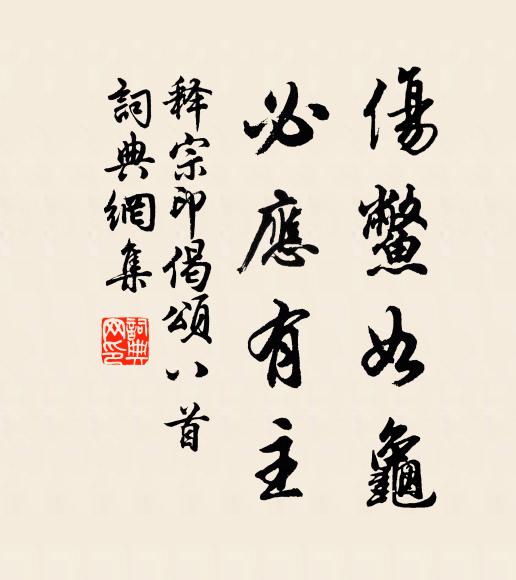 傷鱉如龜
必應有主
释宗印偈頌八首
詞典網集
詞典网印